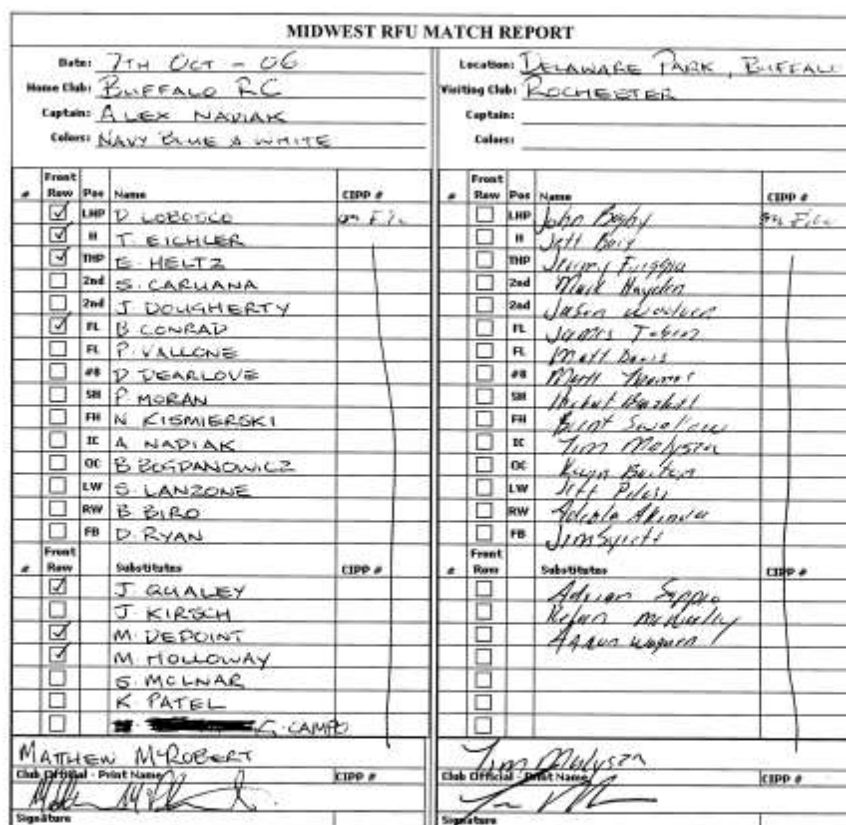 MIDWEST RFU MATCH REPORT
Date: 7TH OCT - 06
Home Club: BUFFALO RC
Captain: ALEX NADIAK
Colors: NAVY BLUE & WHITE
# Front Row Pos Name CIPP #
LHP D. LOBOSCO on File
H T. EICHLER
THP E. HELTZ
2nd S. CARUANA
2nd J. DOUGHERTY
FL B CONRAD
FL P. VALLONE
#8 D DEARLOVE
SH P MORAN
FH N KISMIERSKI
IC A NADIAK
OC B BOGDANOWICZ
LW S. LANZONE
RW B BIRO
FB D. RYAN
# Front Row Substitutes CIPP #
J. QUALEY
J. KIRSCH
M. DEPOINT
M. HOLLOWAY
S. MCLNAR
K PATEL
CAMPO
MATTHEW McROBERT
Club Official - Print Name CIPP #
Signature
Location: DELAWARE PARK, BUFFALO
Visiting Club: ROCHESTER
Captain:
Colors:
# Front Row Pos Name CIPP #
LHP John on File
H Jeff
THP Jeremy
2nd Mark Hayden
2nd Jason
FL James Tobin
FL Matt Davis
#8 Matt
SH
FH Brent Swallow
IC Tim Malyszn
OC
LW Jeff
RW
FB Jim
# Front Row Substitutes CIPP #
Adrian
Aaron Wagner
Tim Malyszn
Club Official - Print Name CIPP #
Signature